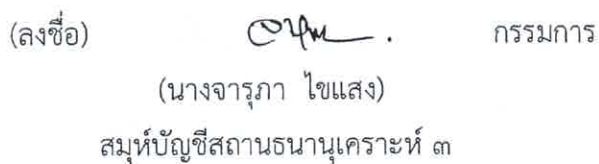 (ลงชื่อ) กรรมการ
(นางจารุภา ไขแสง)
สมุห์บัญชีสถานธนานุเคราะห์ ๓